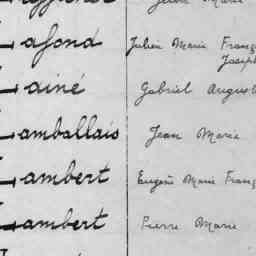 Lafond Julien Marie Franç
Joseph
Lainé Gabriel August
Lamballais Jean Marie
Lambert Eugène Marie Franç
Lambert Pierre Marie